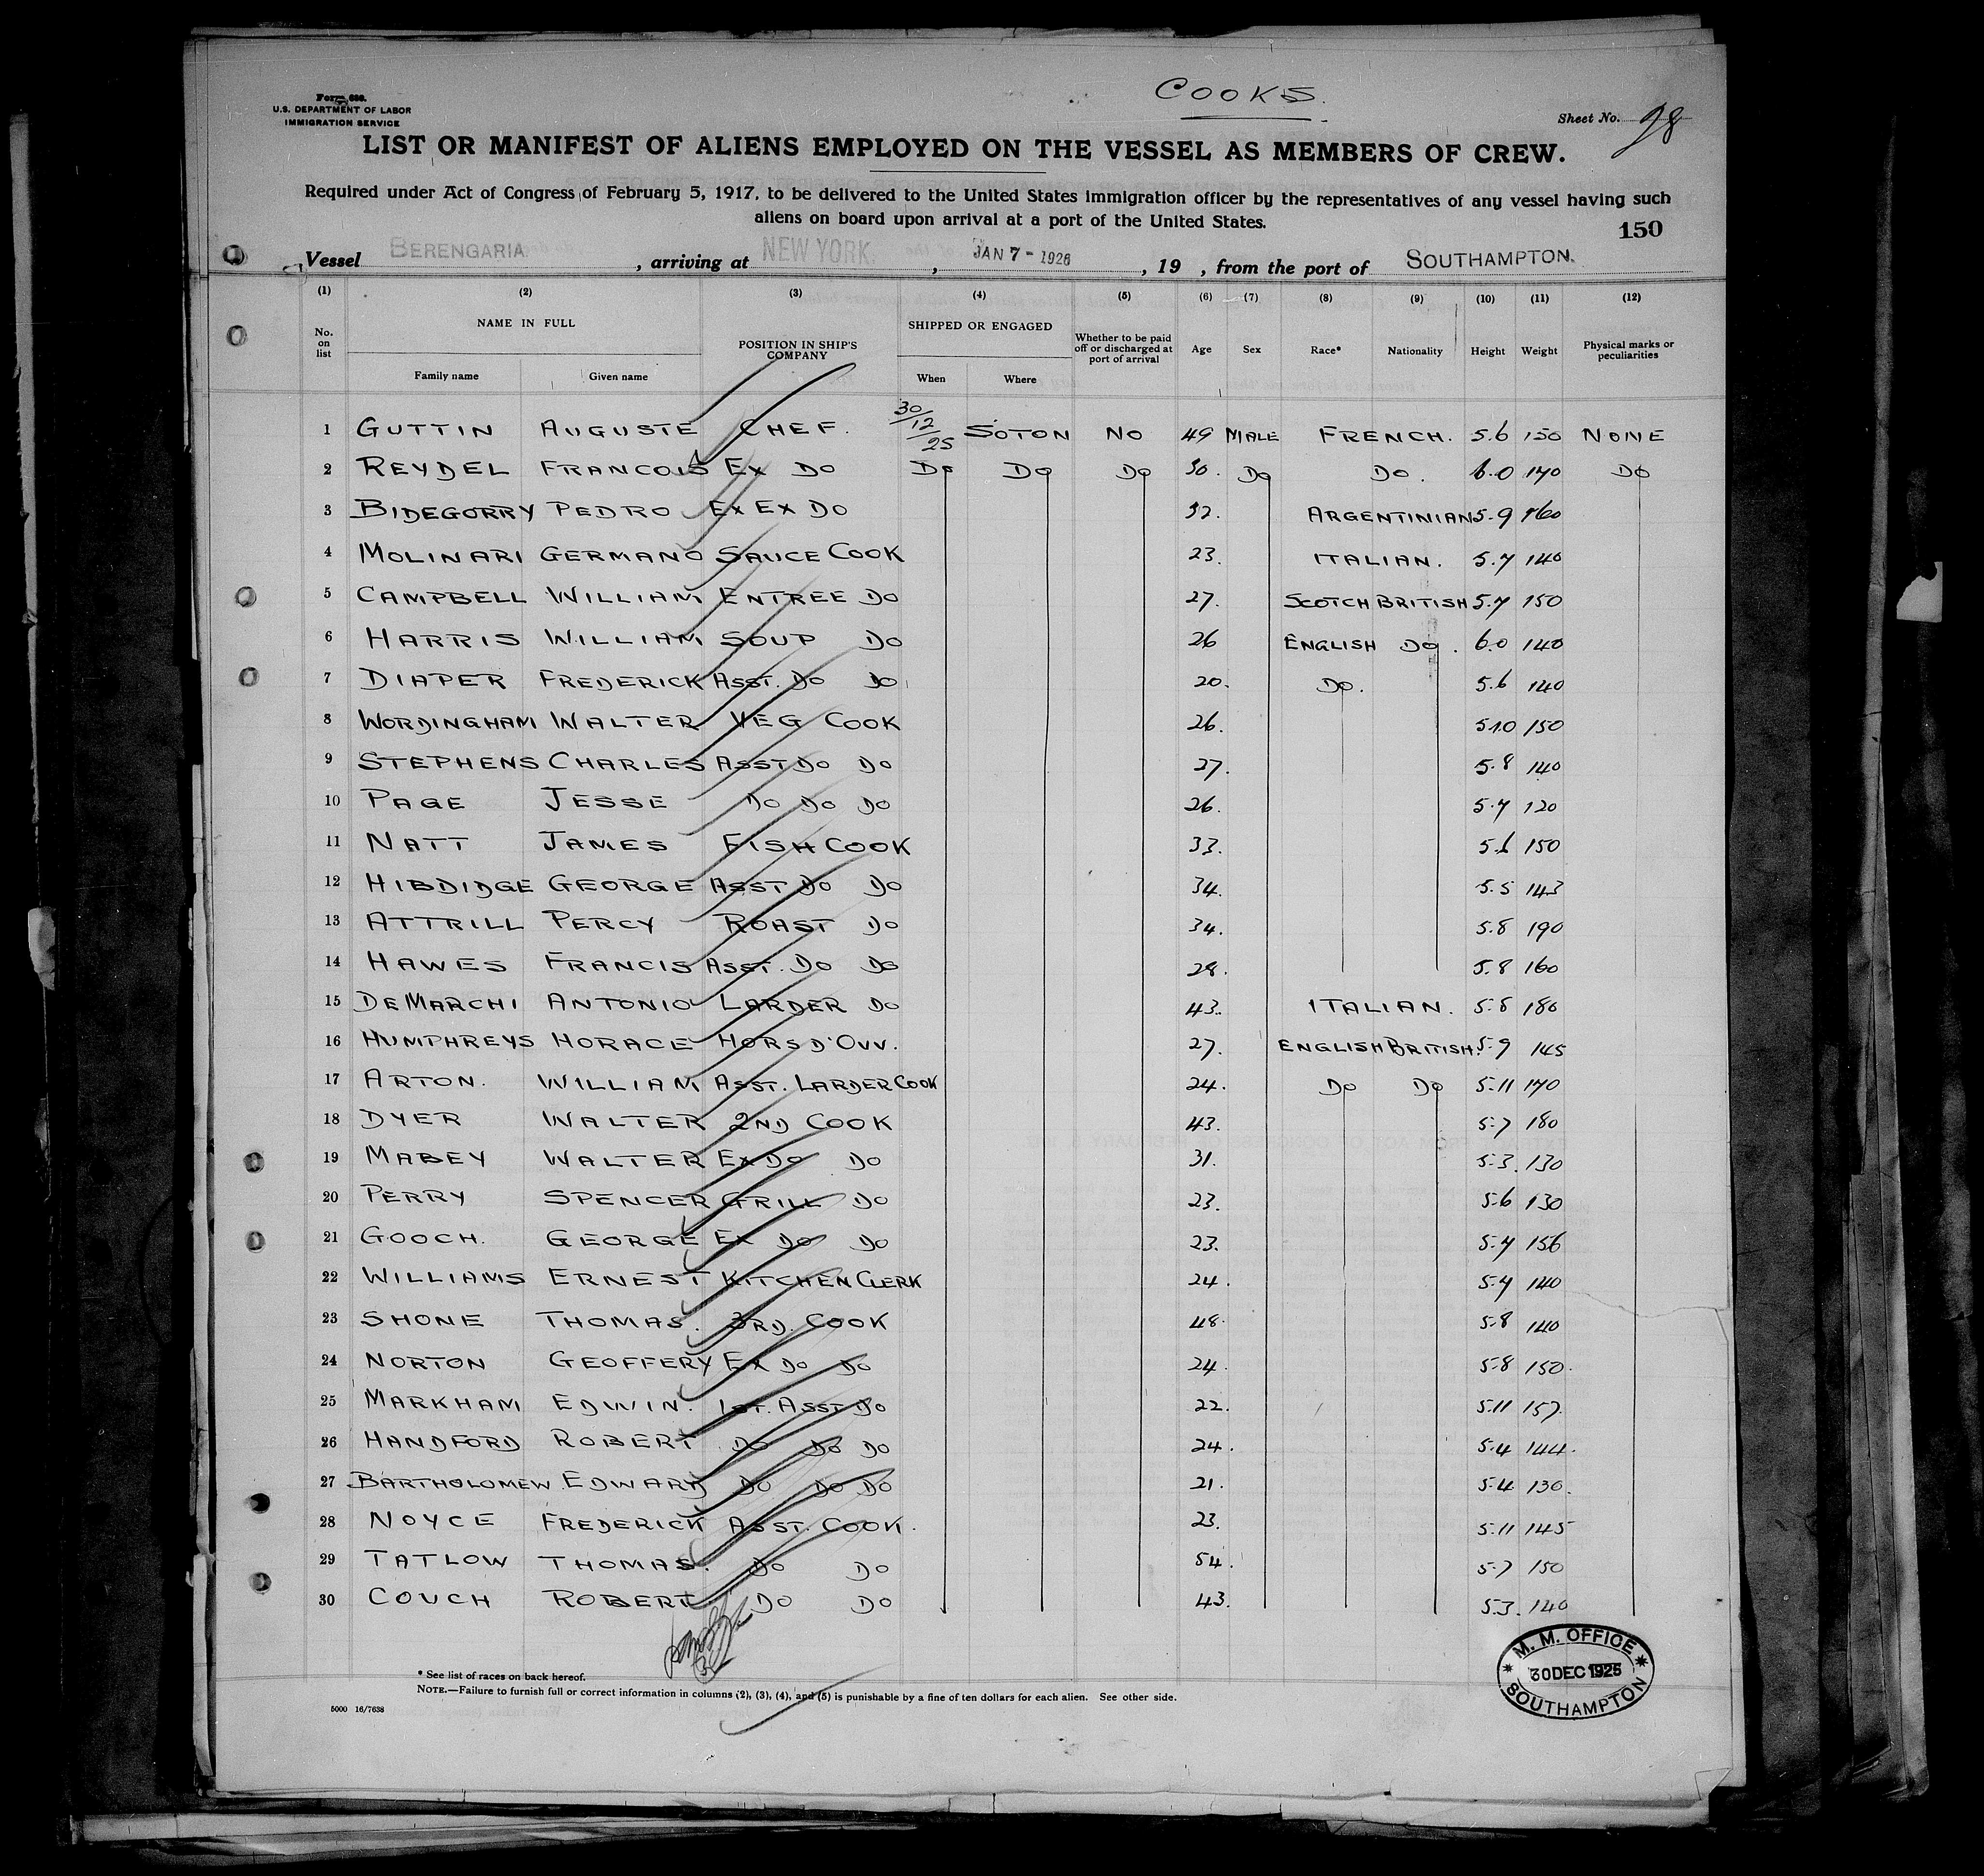 COOKS.
Form 686.
U.S. DEPARTMENT OF LABOR
IMMIGRATION SERVICE
Sheet No. 98
LIST OR MANIFEST OF ALIENS EMPLOYED ON THE VESSEL AS MEMBERS OF CREW.
Required under Act of Congress of February 5, 1917, to be delivered to the United States immigration officer by the representatives of any vessel having such
aliens on board upon arrival at a port of the United States.
150
Vessel BERENGARIA, arriving at NEW YORK., JAN 7 - 1926, 19 , from the port of SOUTHAMPTON.
(1) (2) (3) (4) (5) (6) (7) (8) (9) (10) (11) (12)
No. on list NAME IN FULL POSITION IN SHIP'S COMPANY SHIPPED OR ENGAGED Whether to be paid off or discharged at port of arrival Age Sex Race* Nationality Height Weight Physical marks or peculiarities
Family name Given name When Where
1 GUTTIN AUGUSTE CHEF. 30/12/25 SOTON NO 49 MALE FRENCH. 5.6 150 NONE
2 REYDEL FRANCOIS EX DO DO DO DO 30. DO DO. 6.0 170 DO
3 BIDEGORRY PEDRO EX EX DO 32. ARGENTINIAN 5-9 160
4 MOLINARI GERMANO SAUCE COOK 23. ITALIAN. 5.7 140
5 CAMPBELL WILLIAM ENTREE DO 27. SCOTCH BRITISH 5.7 150
6 HARRIS WILLIAM SOUP DO 26 ENGLISH DO. 6.0 140
7 DIAPER FREDERICK ASST. DO DO 20. DO. 5.6 140
8 WORDINGHAM WALTER VEG COOK 26. 5.10 150
9 STEPHENS CHARLES ASST DO DO 27. 5.8 140
10 PAGE JESSE DO DO DO 26. 5.7 120
11 NATT JAMES FISH COOK 33. 5.6 150
12 HIBDIDGE GEORGE ASST DO DO 34. 5.5 143
13 ATTRILL PERCY ROAST DO 34. 5.8 190
14 HAWES FRANCIS ASST. DO DO 28. 5.8 160
15 DEMARCHI ANTONIO LARDER DO 43. ITALIAN. 5.8 180
16 HUMPHREYS HORACE HORS D'OUV. 27. ENGLISH BRITISH. 5-9 145
17 ARTON. WILLIAM ASST. LARDER COOK 24. DO DO 5-11 170
18 DYER WALTER 2ND COOK 43. 5-7 180
19 MABEY WALTER EX DO DO 31. 5-3. 130
20 PERRY SPENCER GRILL DO 23. 5-6 130
21 GOOCH. GEORGE EX DO DO 23. 5-7 156
22 WILLIAMS ERNEST KITCHEN CLERK 24. 5-7 140
23 SHONE THOMAS. 3RD. COOK 48. 5-8 140
24 NORTON GEOFFERY EX DO DO 24. 5-8 150.
25 MARKHAM EDWIN. 1ST. ASST DO 22. 5-11 157.
26 HANDFORD ROBERT DO DO DO 24. 5-4 144.
27 BARTHOLOMEW EDWARD DO DO DO 21. 5-4 130.
28 NOYCE FREDERICK ASST. COOK. 23. 5-11 145
29 TATLOW THOMAS. DO DO 54. 5-7 150
30 COUCH ROBERT DO DO 43. 5.3. 140
M. M. OFFICE
30 DEC 1925
SOUTHAMPTON
* See list of races on back hereof.
NOTE.—Failure to furnish full or correct information in columns (2), (3), (4), and (5) is punishable by a fine of ten dollars for each alien. See other side.
5000 16/7638